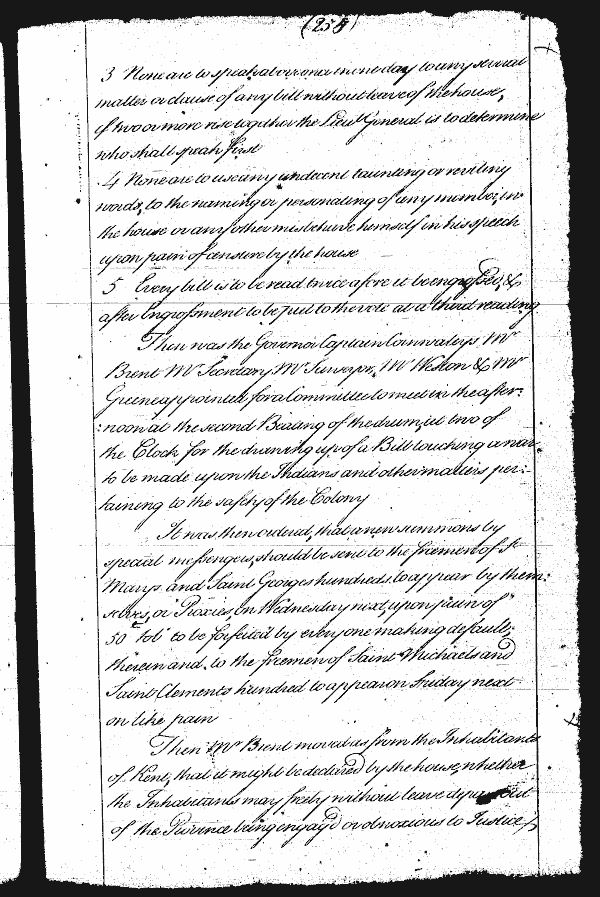 (255)
3 None are to speak above once in one day to any several
matter or clause of any bill without leave of the house,
if two or more rise together the Lieut General is to determine
who shall speak first
4 None are to use any undecent taunting or reviling
words, to the naming or personating of any member, in
the house or any other misbehave himself in his speech
upon pain of censure by the house
5 Every bill is to be read twice afore it be engrossed, &
after Engrossment to be put to the vote at a third reading
Then was the Governor Captain Cornwaleys Mr
Brent Mr Secretary Mr Surveyor, Mr Weston & Mr
Greene appointed for a Committee to meet in the after:
:noon at the second Beating of the drum, at two of
the Clock for the drawing up of a Bill touching a war
to be made upon the Indians and other matters per:
taining to the safety of the Colony
It was then ordered, that a new summons by
special messengers, should be sent to the freemen of St
Marys and Saint Georges hundreds to appear by them:
selves, or Proxies, on Wednesday next, upon pain of
50 tob to be forfeited by every one making default,
therein and to the freemen of Saint Michaels and
Saint Clements hundred to appear on Friday next
on like pain
Then Mr Brent moved as from the Inhabitants
of Kent, that it might be declared by the house, whether
the Inhabitants may freely without leave depart out
of the Province being engag'd or obnoxious to Justice